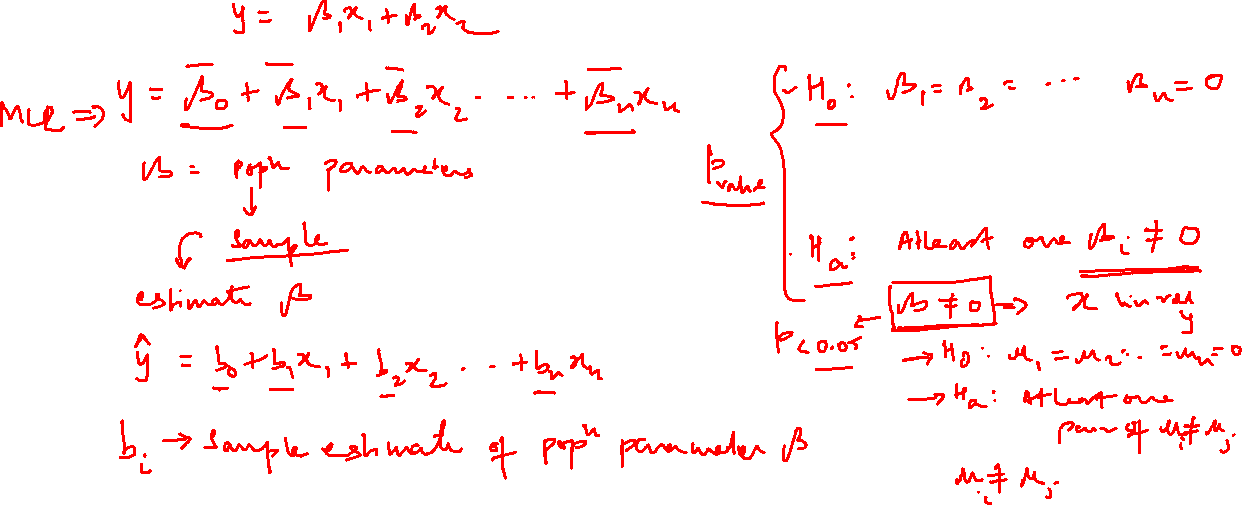 y = β₁x₁ + β₂x₂
MLR ⇒ y = β₀ + β₁x₁ + β₂x₂ . . . . + βₙxₙ
β = popⁿ parameters
↓
sample
estimate β
ŷ = b₀ + b₁x₁ + b₂x₂ . . . + bₙxₙ
bᵢ → sample estimate of popⁿ parameter β
p value
H₀ : β₁ = β₂ = ... βₙ = 0
Hₐ : Atleast one βᵢ ≠ 0
p < 0.05 ← β ≠ 0 → x lin rel y
→ H₀ : μ₁ = μ₂ .. = μₙ = 0
→ Hₐ : Atleast one
pair of μᵢ ≠ μⱼ
μᵢ ≠ μⱼ